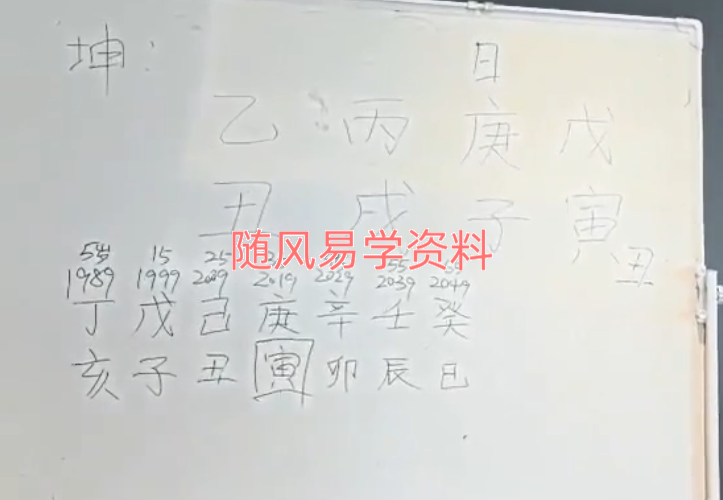 坤: 日
乙 丙 庚 戊
丑 戌 子 寅 丑
随风易学资料
5岁 15 25 55
1989 1999 2009 2019 2029 2039 2049
丁 戊 己 庚 辛 壬 癸
亥 子 丑 寅 卯 辰 巳